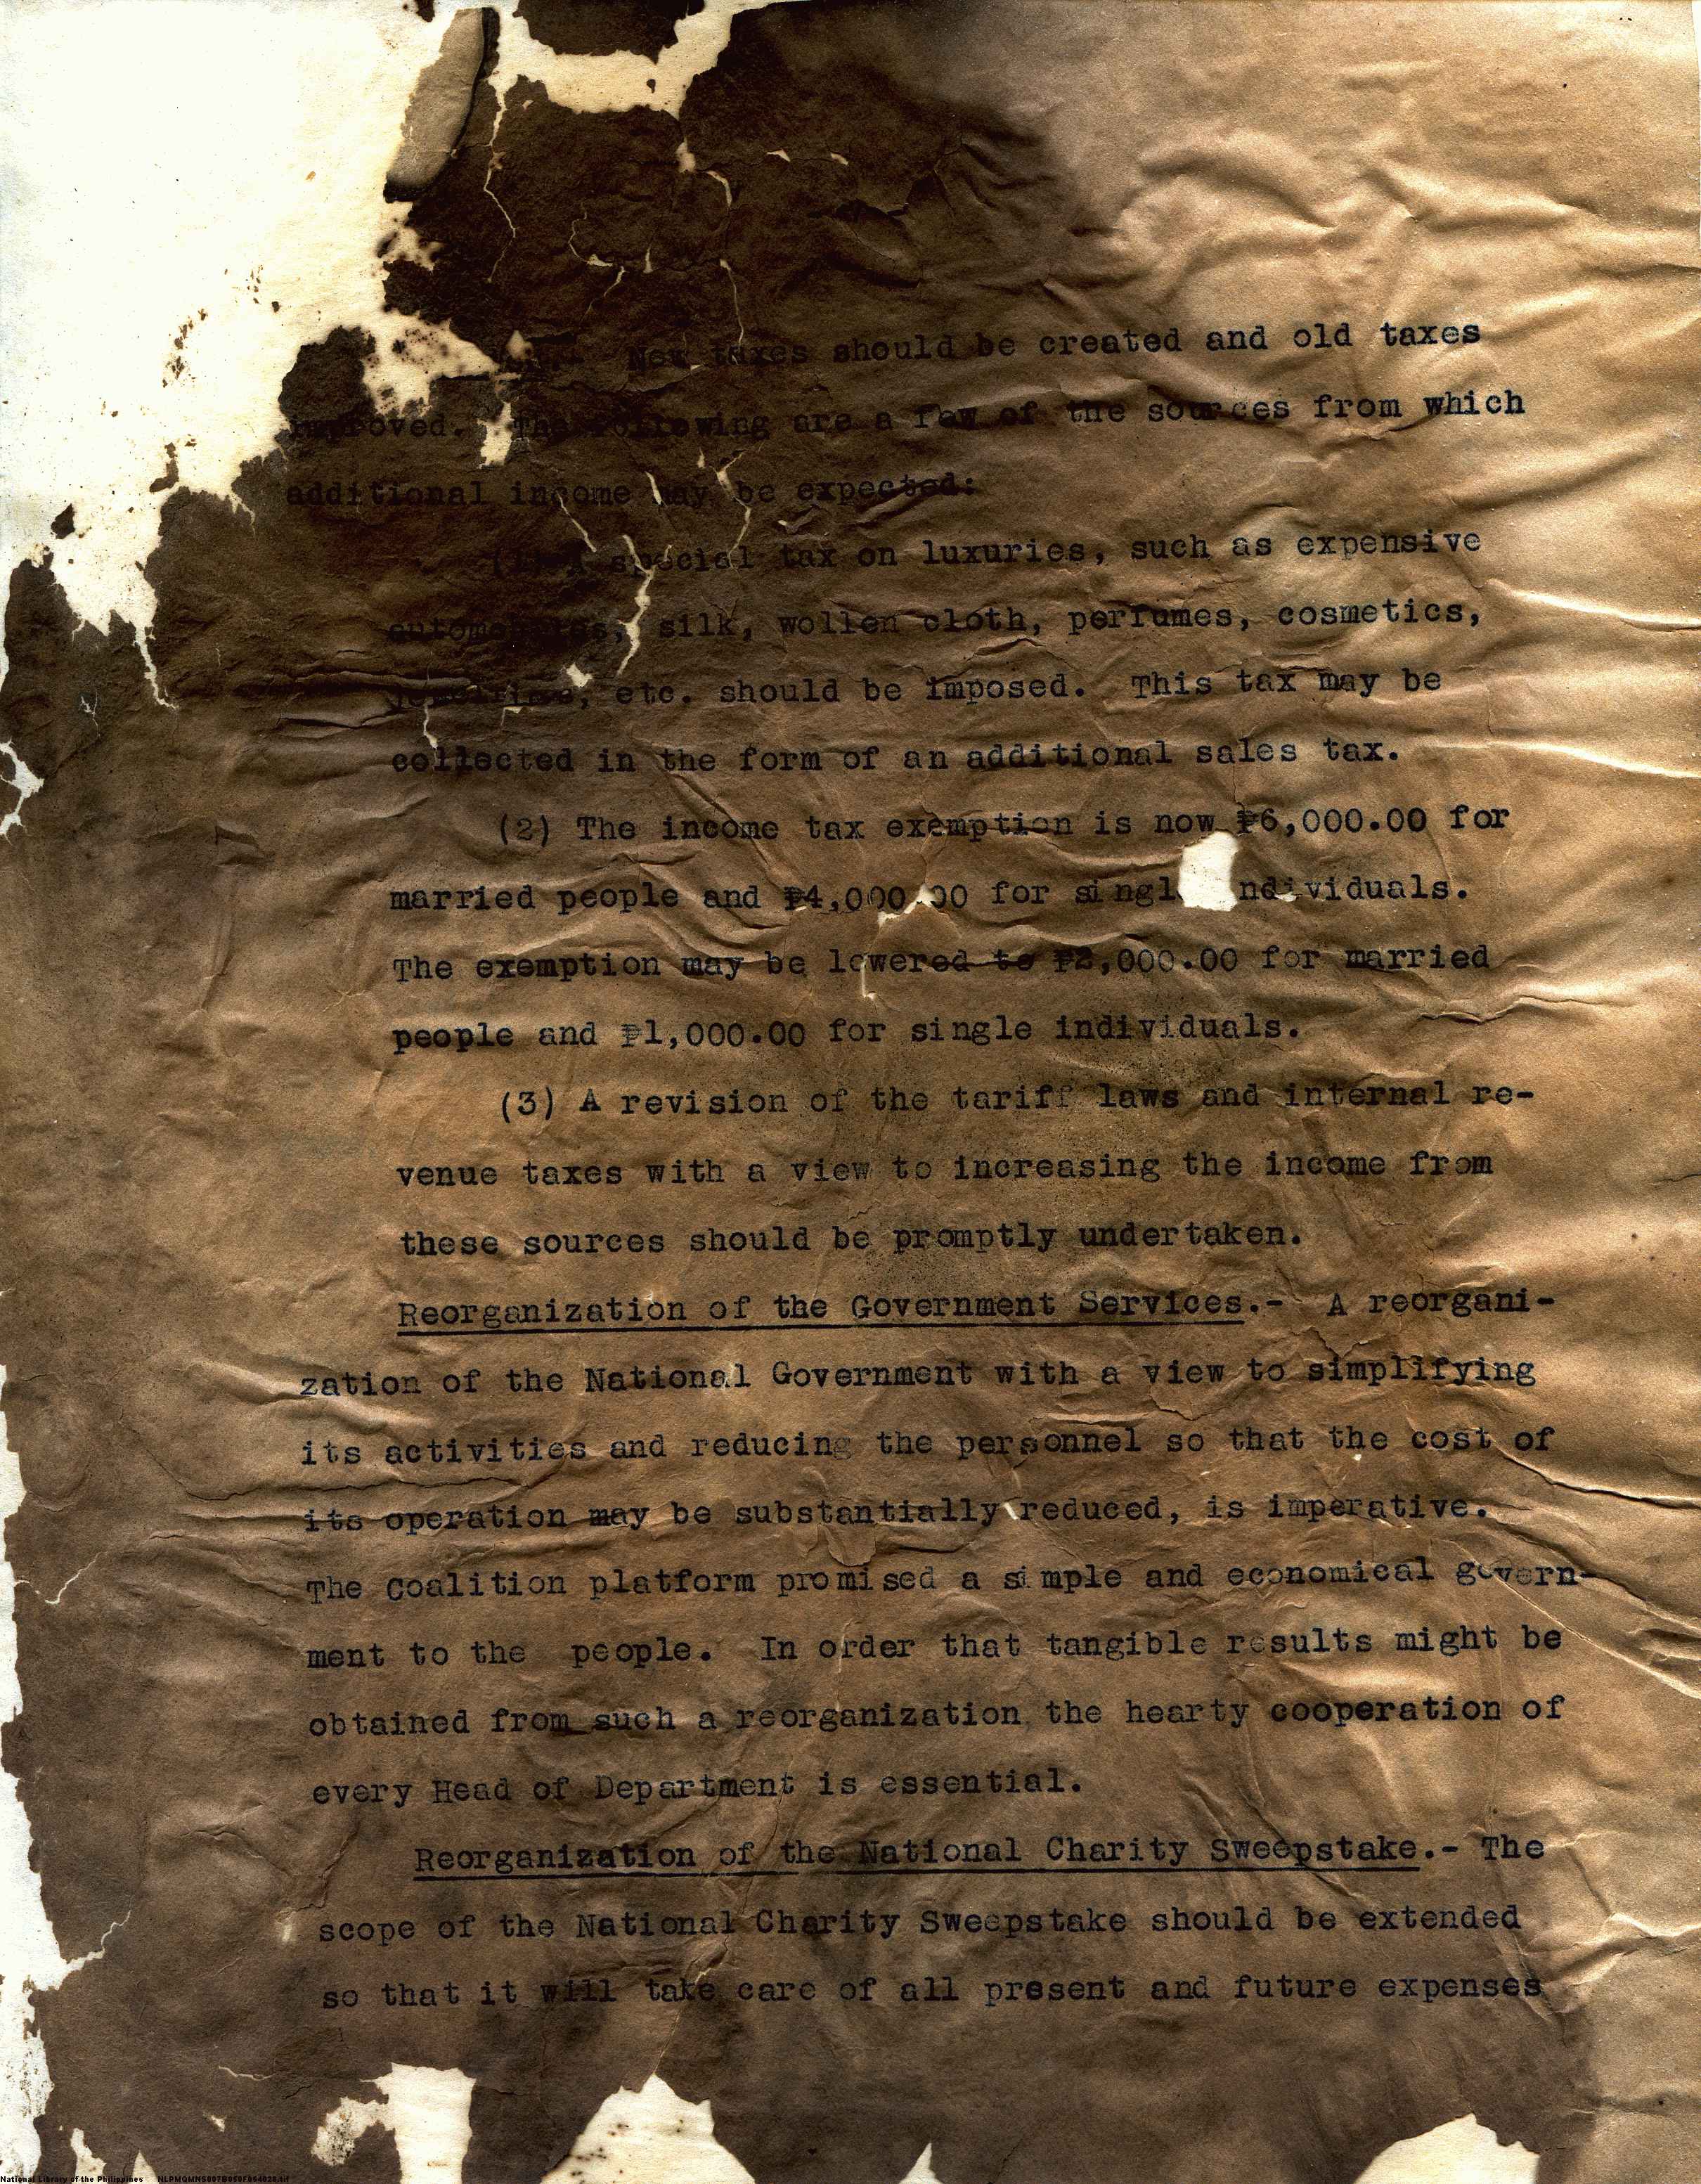 New taxes should be created and old taxes
improved. The following are a few of the sources from which
additional income may be expected:
(1) A special tax on luxuries, such as expensive
automobiles, silk, wollen cloth, perfumes, cosmetics,
etc. should be imposed. This tax may be
collected in the form of an additional sales tax.
(2) The income tax exemption is now ₱6,000.00 for
married people and ₱4,000.00 for single individuals.
The exemption may be lowered to ₱2,000.00 for married
people and ₱1,000.00 for single individuals.
(3) A revision of the tariff laws and internal re-
venue taxes with a view to increasing the income from
these sources should be promptly undertaken.
Reorganization of the Government Services.- A reorgani-
zation of the National Government with a view to simplifying
its activities and reducing the personnel so that the cost of
its operation may be substantially reduced, is imperative.
The Coalition platform promised a simple and economical govern-
ment to the people. In order that tangible results might be
obtained from such a reorganization the hearty cooperation of
every Head of Department is essential.
Reorganization of the National Charity Sweepstake.- The
scope of the National Charity Sweepstake should be extended
so that it will take care of all present and future expenses
National Library of the Philippines